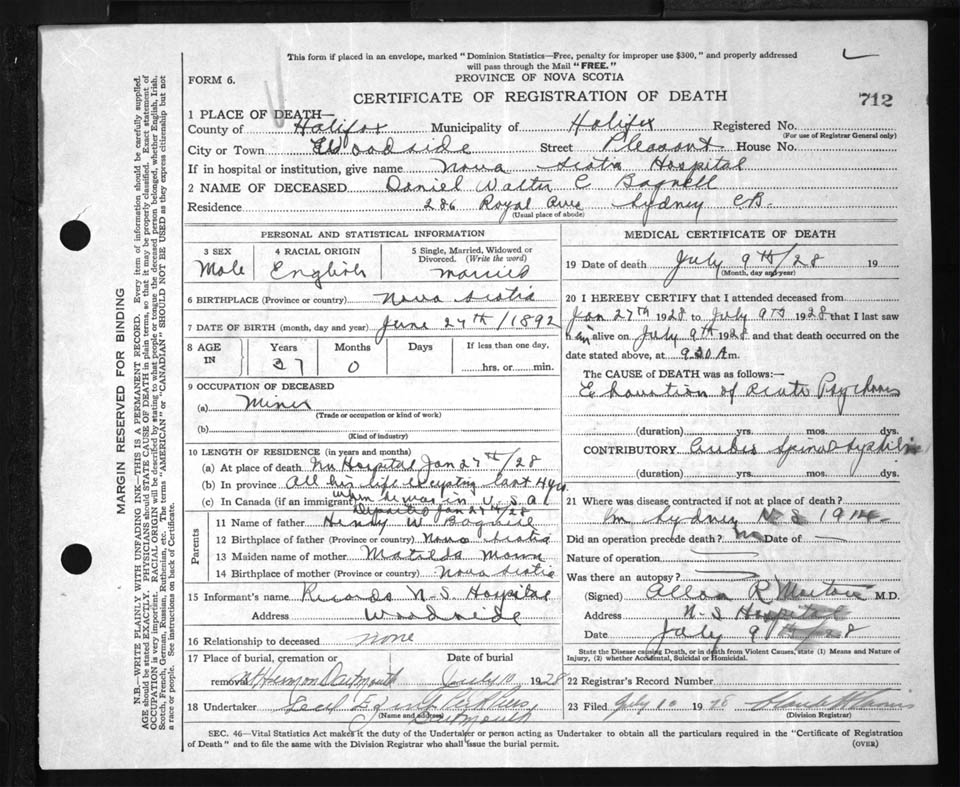 This form if placed in an envelope, marked "Dominion Statistics—Free, penalty for improper use $300," and properly addressed
will pass through the Mail "FREE."
FORM 6.
PROVINCE OF NOVA SCOTIA
CERTIFICATE OF REGISTRATION OF DEATH
712
1 PLACE OF DEATH—
County of Halifax Municipality of Halifax Registered No.
(For use of Registrar General only)
City or Town Woodside Street Pleasant House No.
If in hospital or institution, give name Nova Scotia Hospital
2 NAME OF DECEASED Daniel Walter C Bagnell
Residence 286 Royal Ave Sydney CB.
(Usual place of abode)
PERSONAL AND STATISTICAL INFORMATION
3 SEX
Male
4 RACIAL ORIGIN
English
5 Single, Married, Widowed or
Divorced. (Write the word)
married
6 BIRTHPLACE (Province or country) Nova Scotia
7 DATE OF BIRTH (month, day and year) June 27th/1892
8 AGE
IN
Years
37
Months
0
Days
If less than one day,
hrs. or min.
9 OCCUPATION OF DECEASED
(a) Miner
(Trade or occupation or kind of work)
(b)
(Kind of industry)
10 LENGTH OF RESIDENCE (in years and months)
(a) At place of death In Hospital Jan 27th/28
(b) In province All his life excepting last 4 yrs
(c) In Canada (if an immigrant) when he was in U.S.A
Deported Jan 27th/28
Parents
11 Name of father Henry W. Bagnell
12 Birthplace of father (Province or country) Nova Scotia
13 Maiden name of mother Matilda
14 Birthplace of mother (Province or country) Nova Scotia
15 Informant's name Records N.S. Hospital
Address Woodside
16 Relationship to deceased none
17 Place of burial, cremation or Date of burial
removal Mt Hermon Dartmouth July 10 1928
18 Undertaker Cecil E
(Name and address) Dartmouth
MEDICAL CERTIFICATE OF DEATH
19 Date of death July 9th/28 19
(Month, day and year)
20 I HEREBY CERTIFY that I attended deceased from
Jan 27th 1928 to July 9th 1928 that I last saw
him alive on July 9th 1928 and that death occurred on the
date stated above, at 9.20 A m.
The CAUSE of DEATH was as follows:—
Exhaustion of Acute Psychosis
(duration) yrs. mos. dys.
CONTRIBUTORY Cerebro Spinal Syphilis
(duration) yrs. mos. dys.
21 Where was disease contracted if not at place of death?
In Sydney N S 1914
Did an operation precede death? No Date of —
Nature of operation
Was there an autopsy?
(Signed) Allan R Morton M.D.
Address N-S Hospital
Date July 9th/28
State the Disease causing Death, or in death from Violent Causes, state (1) Means and Nature of
Injury, (2) whether Accidental, Suicidal or Homicidal.
22 Registrar's Record Number
23 Filed July 10 1928
(Division Registrar)
SEC. 46—Vital Statistics Act makes it the duty of the Undertaker or person acting as Undertaker to obtain all the particulars required in the "Certificate of Registration
of Death" and to file the same with the Division Registrar who shall issue the burial permit.
(OVER)
MARGIN RESERVED FOR BINDING
N.B.—WRITE PLAINLY WITH UNFADING INK—THIS IS A PERMANENT RECORD. Every item of information should be carefully supplied.
AGE should be stated EXACTLY. PHYSICIANS should STATE CAUSE OF DEATH in plain terms, so that it may be properly classified. Exact statement of
OCCUPATION is very important. RACIAL ORIGIN will be described by stating to what people or tongue the deceased person belonged, whether English, Irish,
Scotch, French, German, Russian, Ruthenian, etc. The terms "AMERICAN" or "CANADIAN" SHOULD NOT BE USED as they express citizenship but not
a race or people. See instructions on back of Certificate.